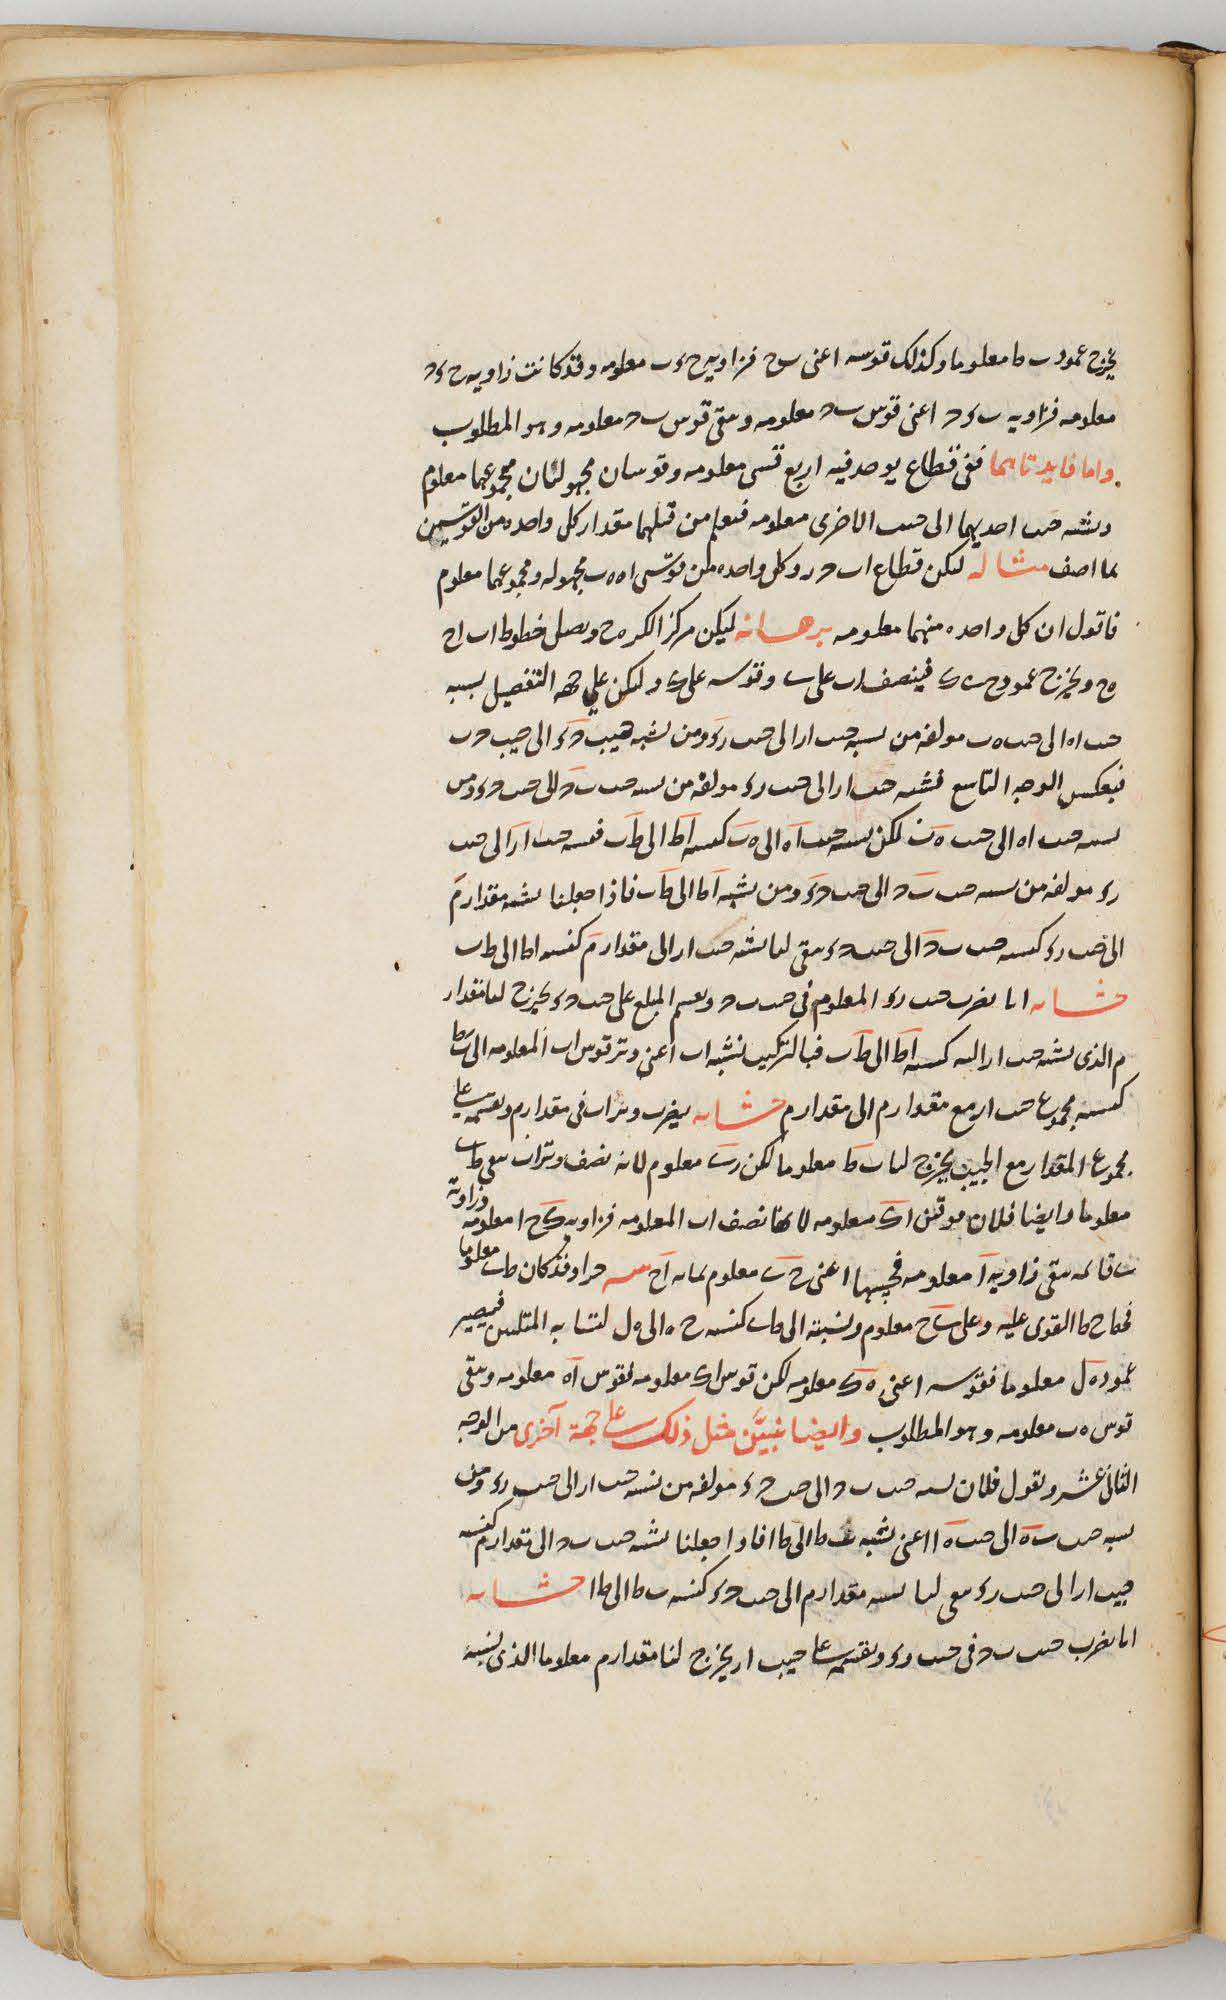 يخرج عمود ب ط معلوما وكذلك قوسه اعنى ب ح فزاويه ح ى ب معلومه وقد كانت زاويه ح ى د
معلومه فزاويه ب ى د اعنى قوس ب د معلومه وتبقى قوس ب د معلومه وهو المطلوب
واما فايدتاهما ففى قطاع يوجد فيه اربع قسى معلومه وقوسان مجهولتان مجموعهما معلوم
ونسبه جيب احديهما الى جيب الاخرى معلومه فنعلم من قبلهما مقدار كل واحده من القوسين
بما اصف مثاله ليكن قطاع اب د ر وكل واحده من قوسى اه ه ب مجهوله ومجموعهما معلوم
فاقول ان كل واحده منهما معلومه برهانه ليكن مركز الكره ح ونصل خطوط اب اح
ه ح ويخرج عمود ح ى فينصف اب على وقوسه على وليكن على جهه التفصيل نسبه
جيب اه الى جيب ه ب مولفه من نسبه جيب ار الى جيب ر ى ومن نسبه جيب د ى الى جيب د ب
فبعكس الوجه التاسع نسبه جيب ار الى جيب ر ى مولفه من نسبه جيب ب د الى جيب د ى ومن
نسبه جيب اه الى جيب ه ب لكن نسبه جيب اه الى ه ب كنسبه اط الى ط ب فنسبه جيب ار الى جيب
ر ى مولفه من نسبه جيب ب د الى جيب د ى ومن نسبه اط الى ط ب فاذا جعلنا نسبه مقدار م
الى جيب ر ى كنسبه جيب ب د الى جيب د ى بقى لنا نسبه جيب ار الى مقدار م كنسبه اط الى ط ب
حسابه انا نضرب جيب ر ى المعلوم فى جيب ب د ونقسم المبلغ على جيب د ى يخرج لنا مقدار
م الذى نسبه جيب ار اليه كنسبه اط الى ط ب فبالتركيب نسبه اب اعنى وتر قوس اب المعلومه الى ب ط
كنسبه مجموع جيب ار مع مقدار م الى مقدار م حسابه نضرب وتر اب فى مقدار م ونقسمه على
مجموع المقدار مع الجيب يخرج لنا ب ط معلوما لكن معلوم لانه نصف وتر اب بقى
معلوما وايضا فلان قوس اى معلومه لانها نصف اب المعلومه فزاويه ى ح ا معلومه وزاوية
قائمه تبقى زاويه ا معلومه فجيبها اعنى ح معلوم وقد كان معلوما
فخط ح ط القوى عليه وعلى معلوم ونسبته الى كنسبه ح ه الى ه ل لتشابه المثلثين فيصير
عمود ه ل معلوما فقوسه اعنى ه ى معلومه لكن قوس اى معلومه فقوس اه معلومه وتبقى
قوس ه ب معلومه وهو المطلوب وايضا نبيّن مثل ذلك على جهة آخرى من الوجه
الثانى عشر ونقول فلان نسبه جيب ب د الى جيب د ى مولفه من نسبه جيب ار الى جيب ر ى ومن
نسبه جيب ب ه الى جيب ه ا اعنى نسبه ب ط الى ط ا فاذا جعلنا نسبه جيب ب د الى مقدار م كنسبه
جيب ار الى جيب ر ى بقى لنا نسبه مقدار م الى جيب د ى كنسبه ب ط الى ط ا حسابه
انا نضرب جيب ب د فى جيب ر ى ونقسمه على جيب ار يخرج لنا مقدار م معلوما الذى نسبته